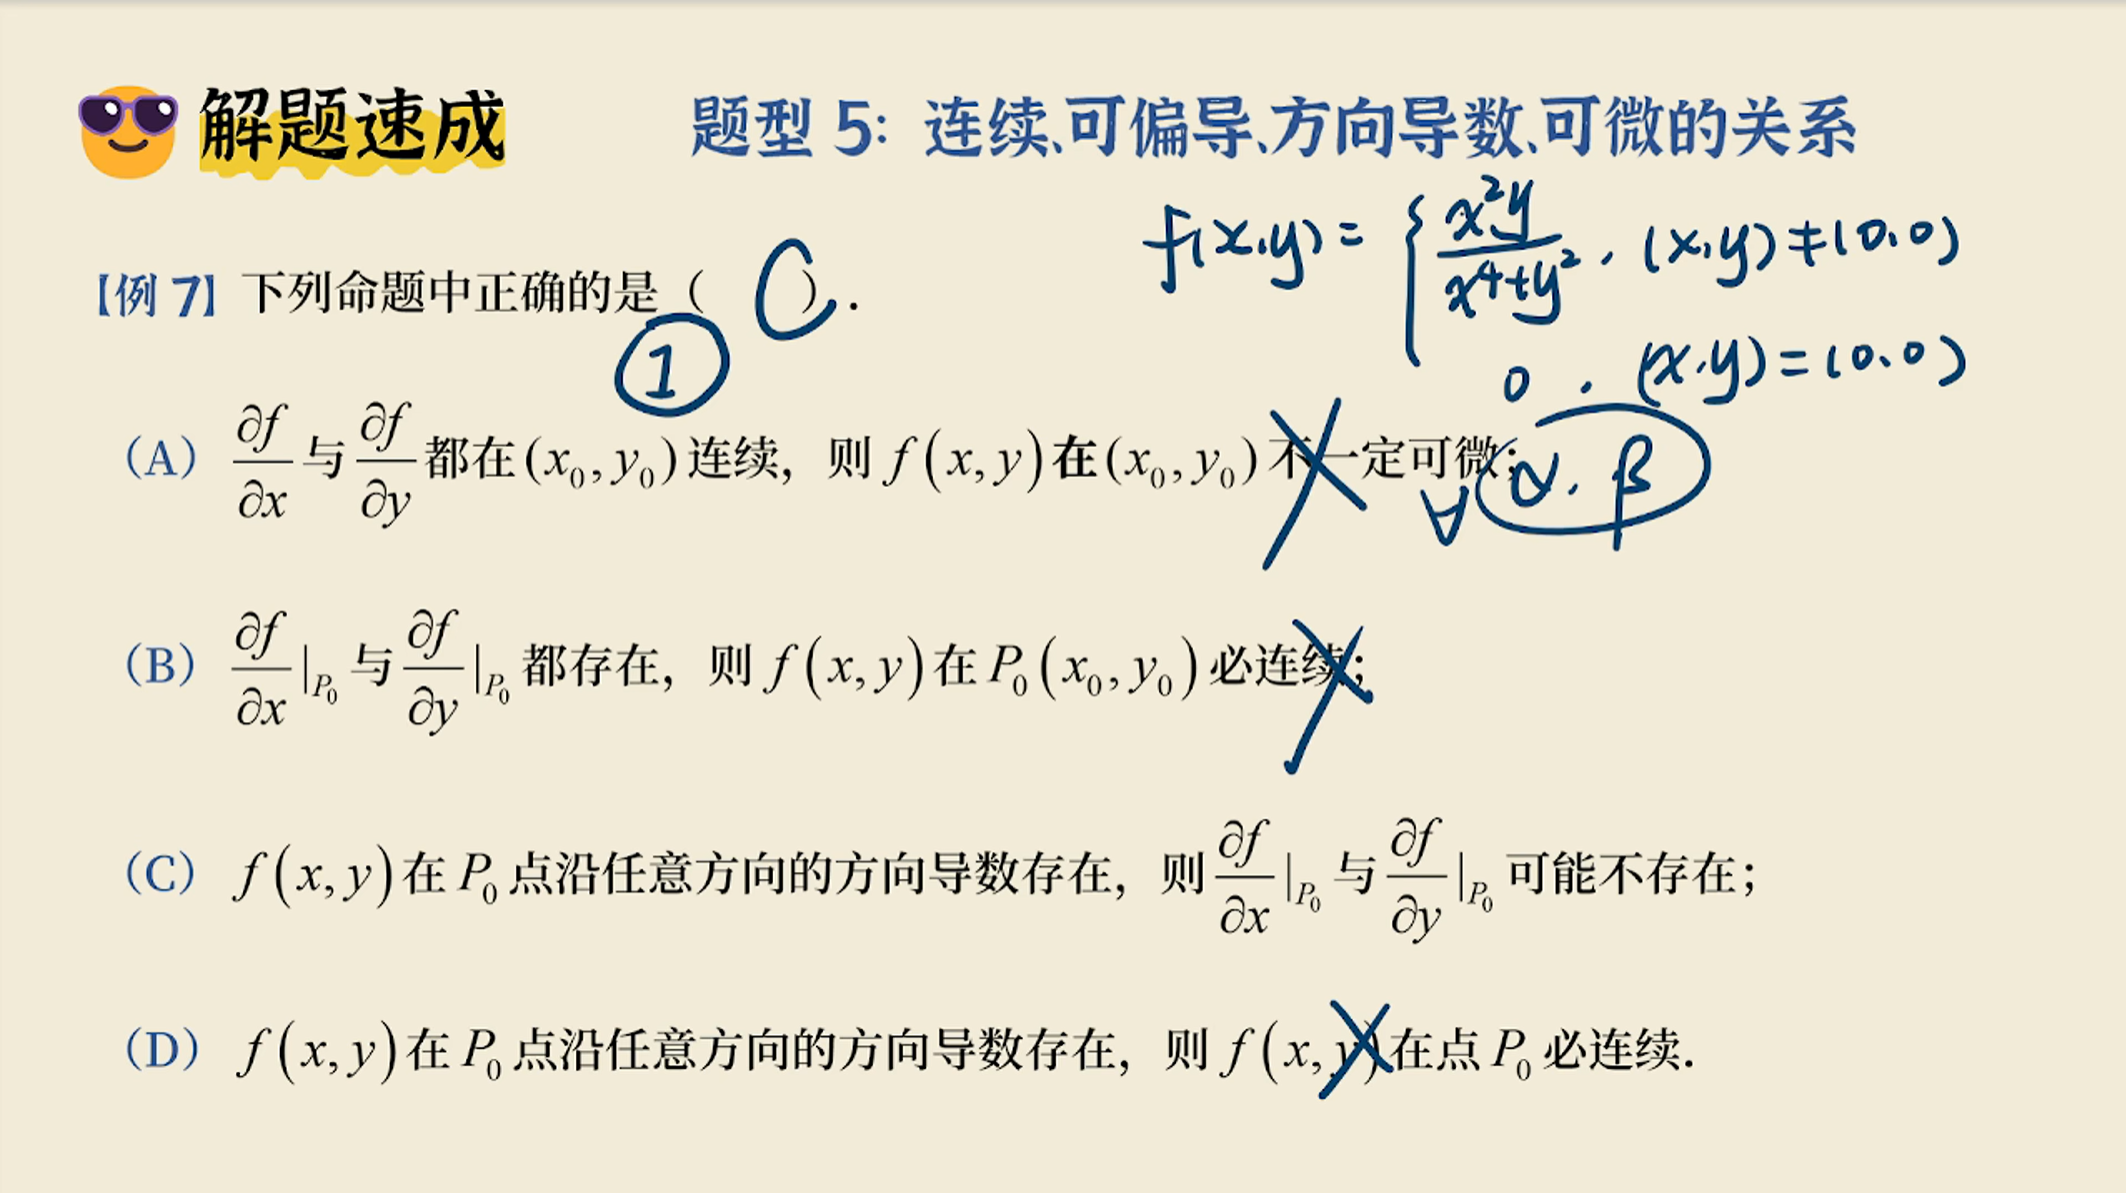 解题速成 题型 5：连续、可偏导、方向导数、可微的关系
f(x,y)= { x²y/(x⁴+y²), (x,y)≠(0,0)
0, (x,y)=(0,0)
【例 7】下列命题中正确的是（ C ）.
①
（A） ∂f/∂x 与 ∂f/∂y 都在(x₀,y₀)连续，则 f(x,y)在(x₀,y₀)不一定可微；
∀ α, β
（B） ∂f/∂x|P₀ 与 ∂f/∂y|P₀ 都存在，则 f(x,y)在 P₀(x₀,y₀)必连续；
（C） f(x,y)在 P₀ 点沿任意方向的方向导数存在，则 ∂f/∂x|P₀ 与 ∂f/∂y|P₀ 可能不存在；
（D） f(x,y)在 P₀ 点沿任意方向的方向导数存在，则 f(x,y)在点 P₀ 必连续.